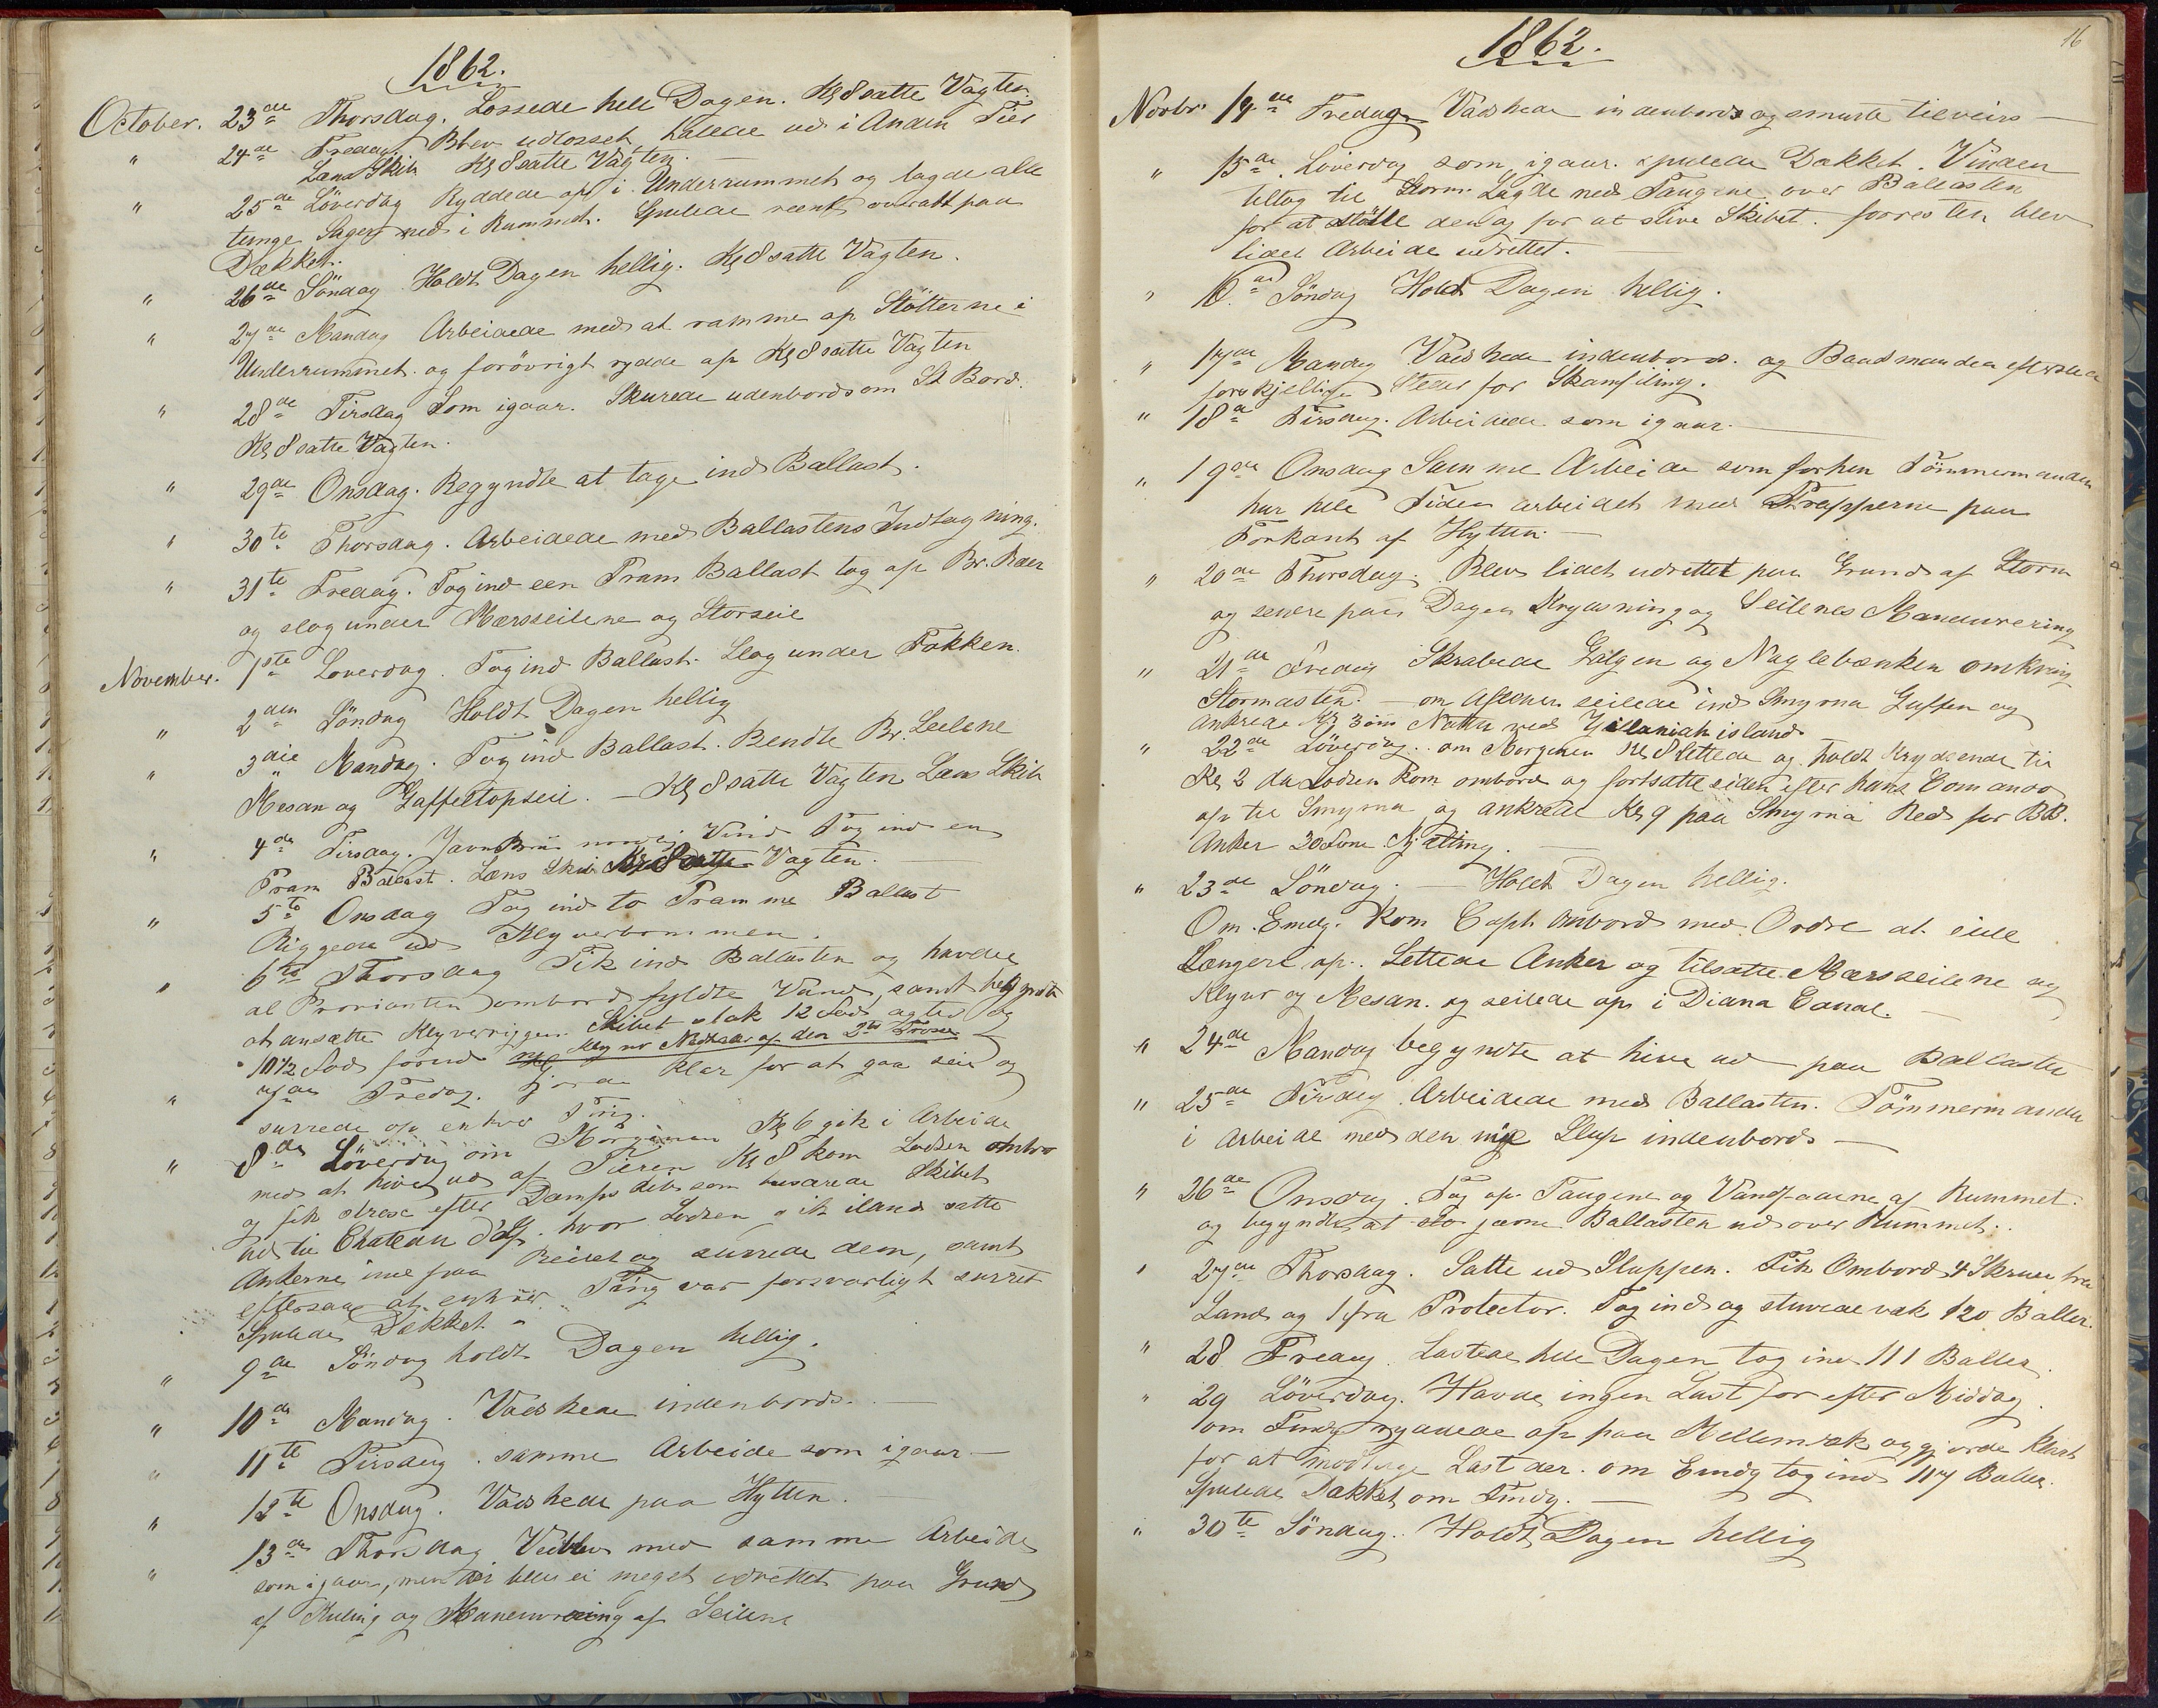 1862.
October. 23de Thorsdag. Lossede hele Dagen. Kl 8 satte Vagten.
" 24de Fredag Blev udlosset, halede ud i Anden Tier
Læns Skib Kl 8 satte Vagten.
" 25de Löverdag Ryddede op i Underrummet og lagde alle
tunge Sager ned i Rummet. Spulede reent overalt paa
Dækket.
" 26de Söndag Holdt Dagen hellig. Kl 8 satte Vagten.
" 27de Mandag Arbeidede med at ramme op Stötterne i
Underrummet. og forövrigt rydde op Kl 8 satte Vagten
" 28de Tirsdag Som igaar. Skurede udenbords om St Bord.
Kl 8 satte Vagten.
" 29de Onsdag. Begyndte at tage ind Ballast.
" 30te Thorsdag. Arbeidede med Ballastens Indtagning.
" 31te Fredag. Tog ind een Pram Ballast tog op Br. Raaer
og slog under Mærsseilene og Storseil
November. 1ste Loverdag. Tog ind Ballast. Slog under Fokken.
" 2den Söndag Holdt Dagen hellig
" 3die Mandag. Tog ind Ballast. Bendte Br. Seilene
Mesan og Gaffeltopseil. — Kl 8 satte Vagten Læns Skib
" 4de Tirsdag. Jævn Bris nordlig Vind Tog ind en
Pram Ballast. Læns Skib Kl 8 satte Vagten.
" 5te Onsdag Tog ind to Pramme Ballast
Riggede ud Klyverbommen.
" 6te Thorsdag Fik ind Ballasten og havde
al Provianten ombord fyldte Vand, samt begyndte
at ansætte Klyverriggen. Skibet stak 12 Fod agter og
10½ Fod forud Klyver Nedhaler af den 2de Trosse
" 7de Fredag. Gjorde klar for at gaa seil og
surrede op enhver Ting.
" 8de Löverdag om Morgenen Kl 6 gik i Arbeide
med at hive ud af Tieren Kl 8 kom Lodsen ombo
og fik strax efter Dampskib som buxerede Skibet
ud til Chateau d'If. hvor Lodsen gik iland satte
Ankerne inde paa Reilet og surrede dem, samt
eftersaae at enhver Ting var forsvarligt surret
Spulede Dækket —
" 9de Söndag holdt Dagen hellig.
" 10de Mandag. Vadskede indenbords. —
" 11te Tirsdag. samme Arbeide som igaar —
" 12te Onsdag. Vadskede paa Hytten. —
" 13de Thorsdag Vedblev med samme Arbeide
som igaar, men der blev ei meget udrettet paa Grund
af Kuling og Maneuvrering af Seilene
16
1862.
Novbr. 14de Fredag. Vadskede indenbords og smurte tilveirs —
" 15de. Löverdag som igaar. spulede Dækket. Vinden
tiltog til Storm. Lagde ned Taugene over Ballasten
for at stötte den og for at stive Skibet. forresten blev
lidet Arbeide udrettet. —
" 16de Söndag Holdt Dagen hellig.
" 17de Mandag Vadskede indenbords. og Baadsmanden
forskjellige Steder for Skamfiling.
" 18de Tirsdag. Arbeidede som igaar. —
" 19de Onsdag Samme Arbeide som forhen Tömmermanden
har hele Tiden arbeidet med Trapperne paa
Forkant af Hytten. —
" 20de Thorsdag. Blev lidet udrettet paa Grund af Storm
og senere paa Dagen Krydsning og Seilenes Maneuvrering
" 21de Fredag Skrabede Galgen og Naglebænken omkring
Stormasten. — om Aftenen seilede ind Smyrna Guffen og
ankrede Kl 3 om Natten ved island
" 22de Löverdag. om Morgenen Kl 8 lettede og holdt Krydsende til
Kl 3 da Lodsen kom ombord og fortsatte siden efter hans Comando
op til Smyrna og ankrede Kl 9 paa Smyrna Red for BB.
Anker 30 Favne Kjætting. —
" 23de Söndag. — Holdt Dagen hellig.
Om Emdg. kom Capt. ombord med Ordre at seile
Længere op. Lettede Anker og tilsatte Mærsseilene og
Klyver og Mesan. og seilede op i Diana Canal. —
" 24de Mandag begyndte at hive ud paa Ballasten
" 25de Tirsdag. Arbeidede med Ballasten. Tömmermanden
i Arbeide med den nye Slup indenbords —
" 26de Onsdag. Tog op Taugene og Vandfadene af Rummet.
og begyndte at jævne Ballasten ud over Rummet.
" 27de Thorsdag. Satte ud Sluppen. Fik Ombord 4 Skruer fra
Land og 1 fra Protector. Tog ind og stuvede væk 120 Baller.
" 28 Fredag. Lastede hele Dagen tog ind 111 Baller.
" 29 Löverdag. Havde ingen Last for efter Middag.
om Fmdg ryddede op paa Mellemdæk og gjorde klart
for at modtage Last der. om Emdg tog ind 117 Baller.
Spulede Dækket om Fmdg. —
" 30te Söndag. Holdt Dagen hellig